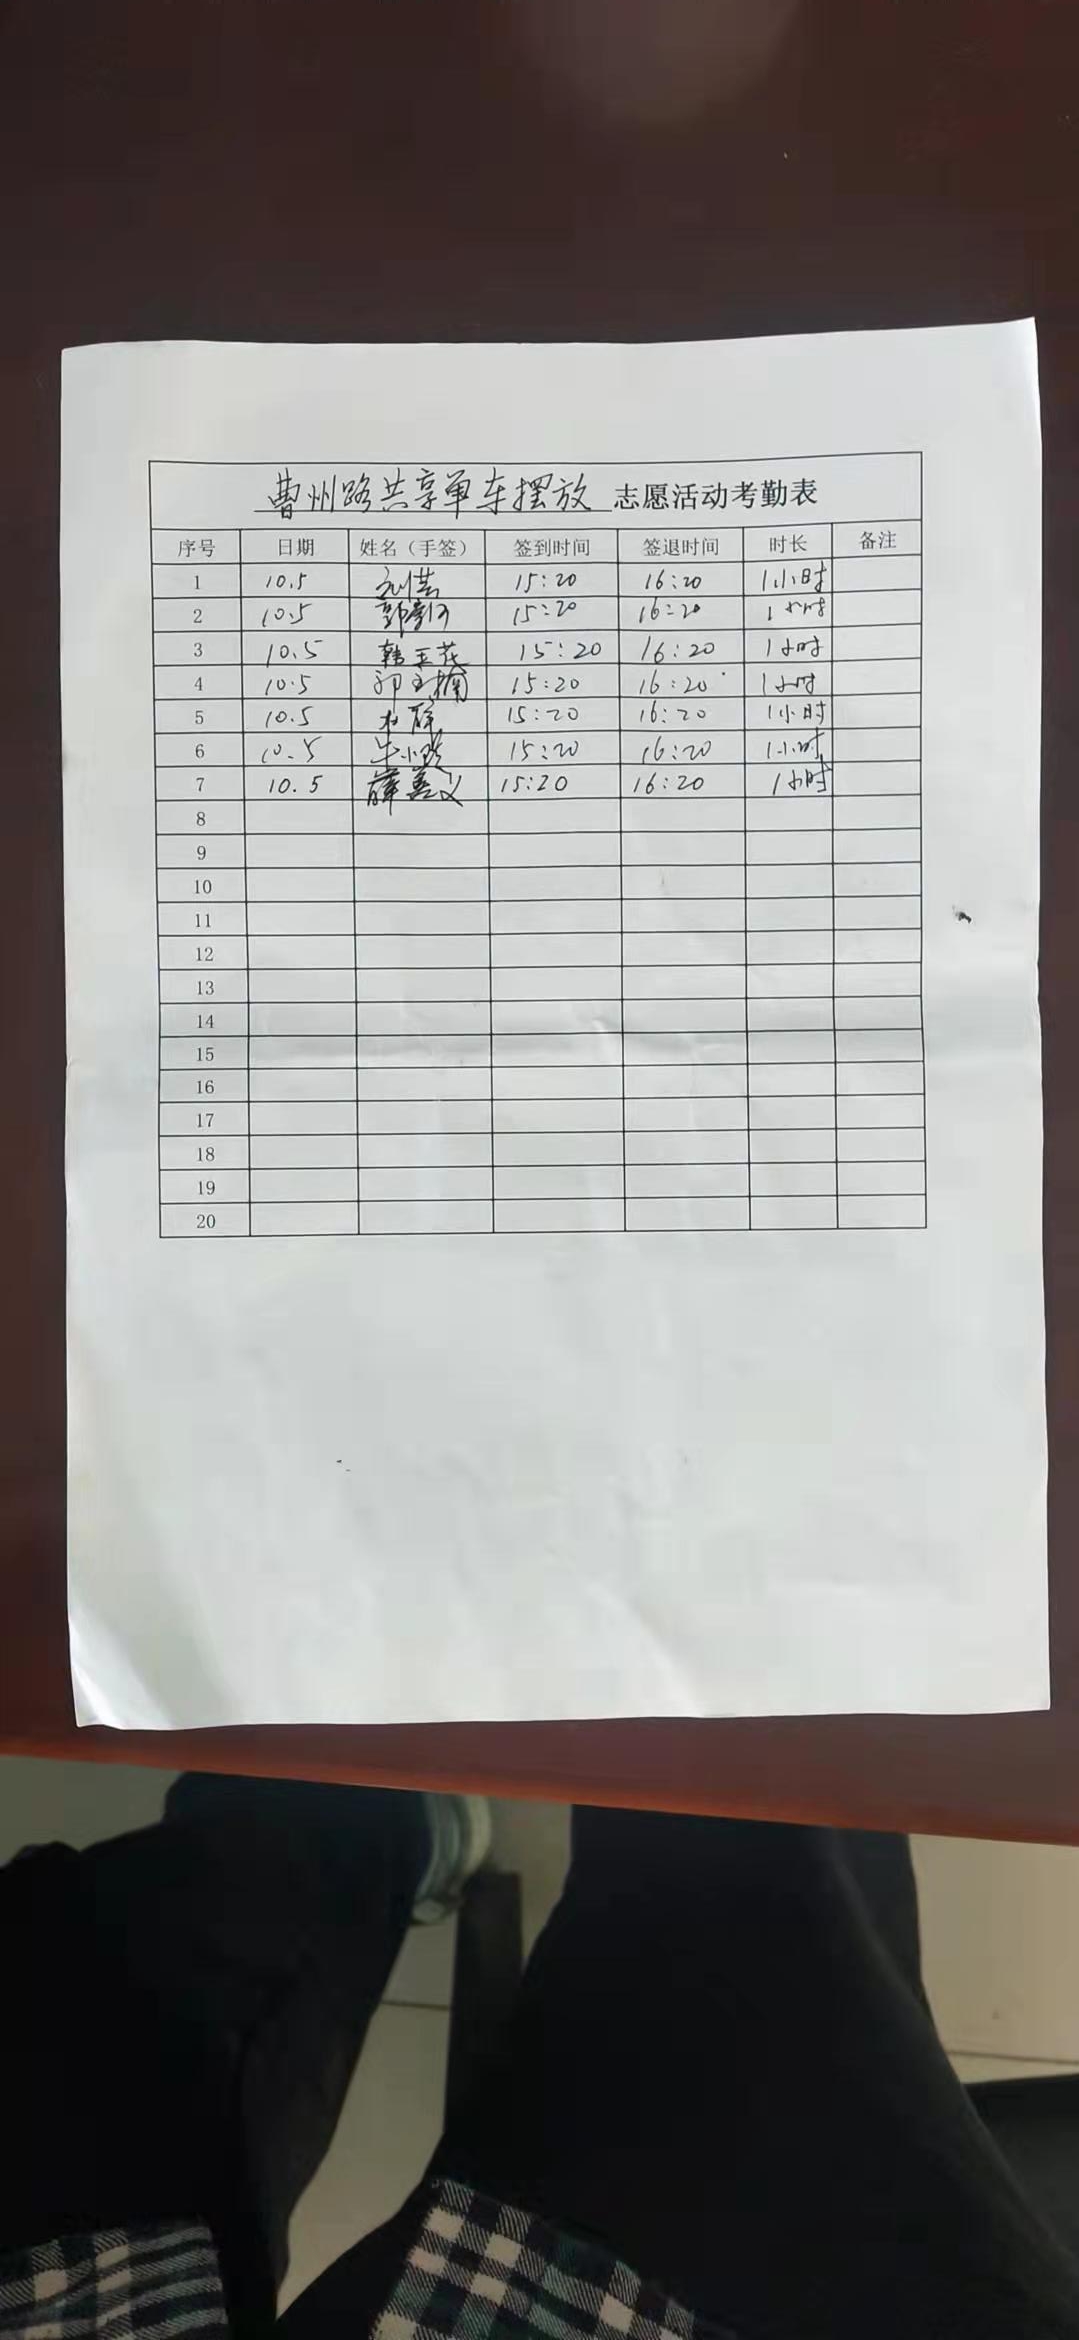 曹州路共享单车摆放 志愿活动考勤表
序号 日期 姓名（手签） 签到时间 签退时间 时长 备注
1 10.5 15:20 16:20 1小时
2 10.5 15:20 16:20 1小时
3 10.5 韩玉花 15:20 16:20 1小时
4 10.5 15:20 16:20 1小时
5 10.5 15:20 16:20 1小时
6 10.5 15:20 16:20 1小时
7 10.5 薛善义 15:20 16:20 1小时
8
9
10
11
12
13
14
15
16
17
18
19
20